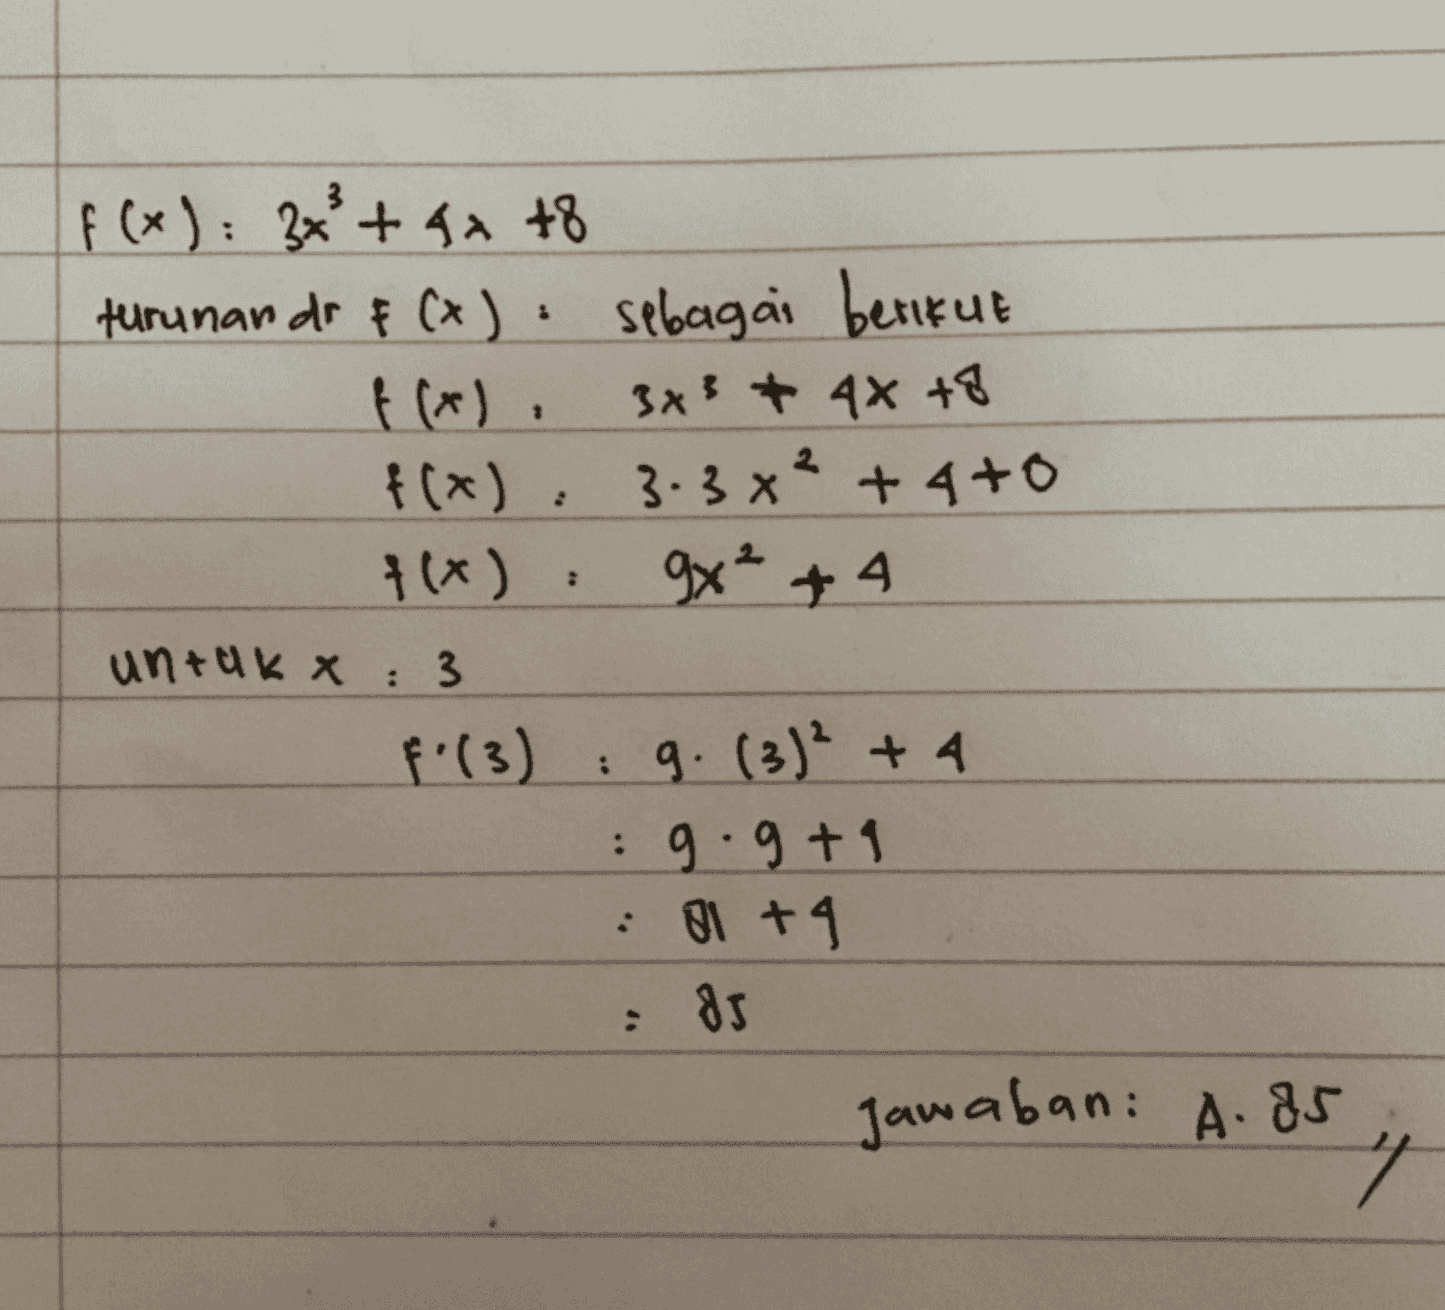 f(x) : 3x³ + 4x + 8
turunan dr f(x) : sebagai berikut
f(x) : 3x³ + 4x + 8
f(x) : 3·3x² + 4 + 0
f(x) : 9x² + 4
untuk x : 3
f'(3) : 9·(3)² + 4
: 9·9 + 4
: 81 + 4
: 85
Jawaban: A. 85 //